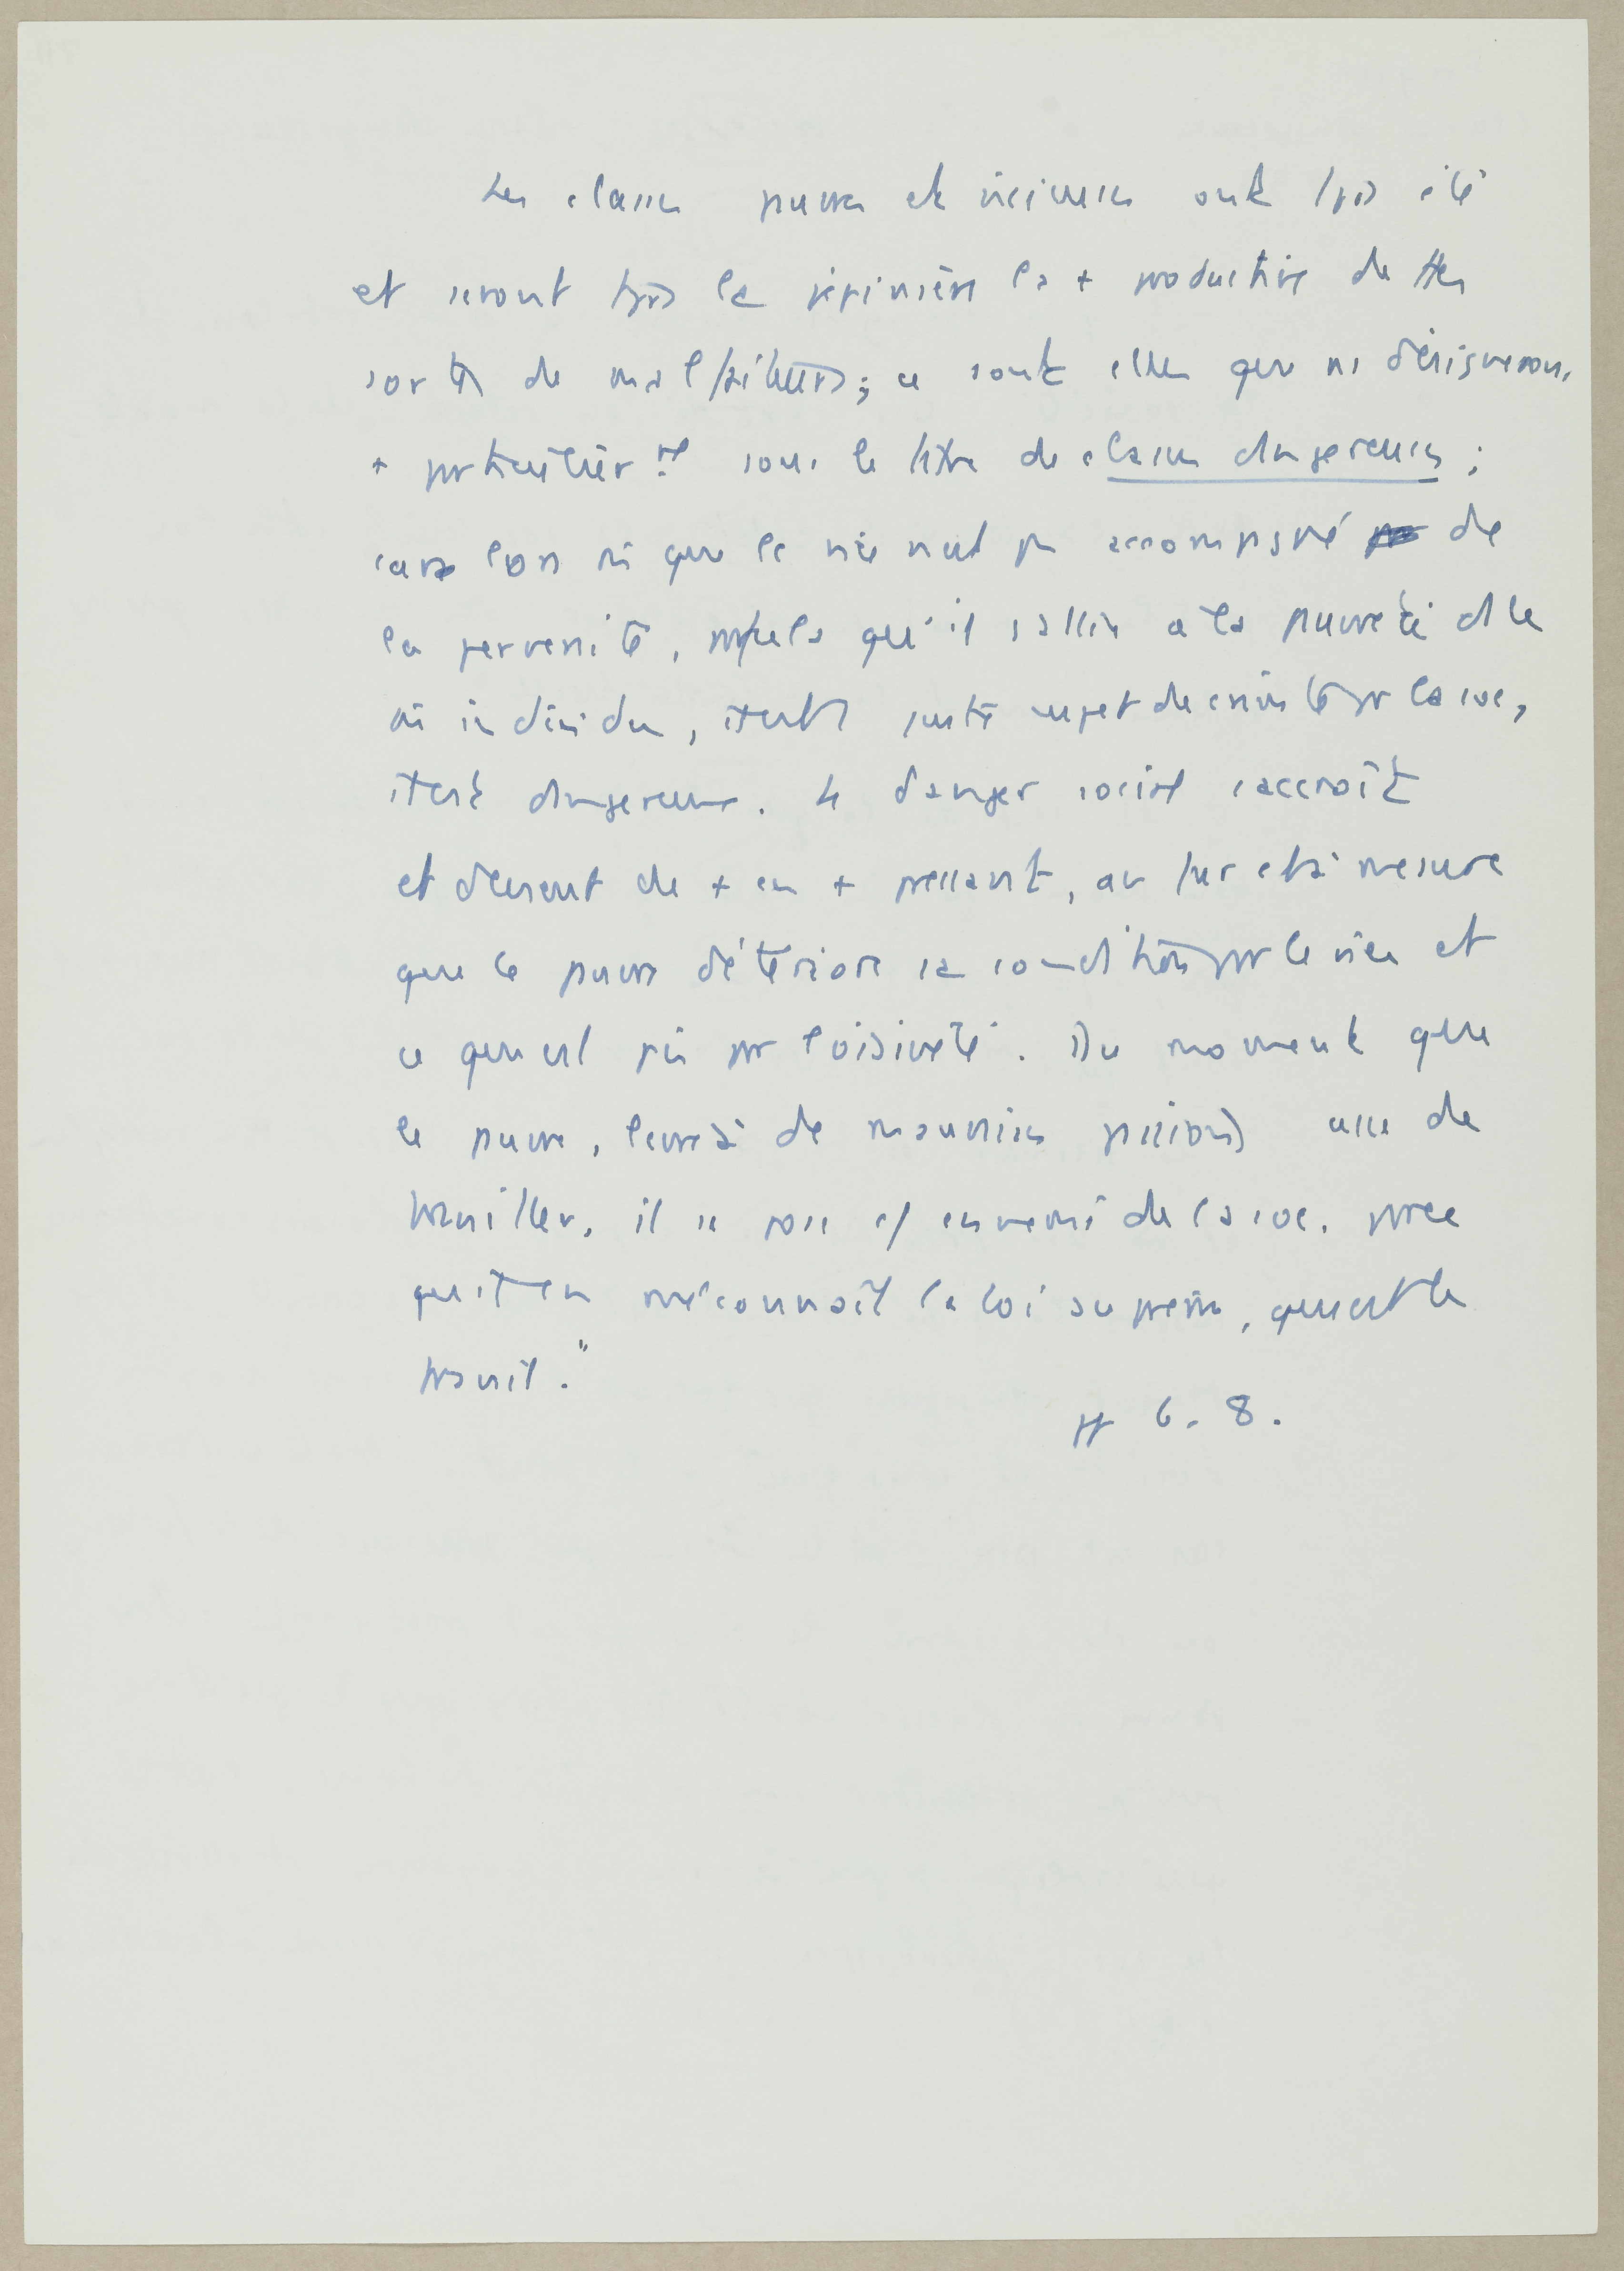 Les classes pauvres et vicieuses ont tjrs été
et seront tjrs la pépinière la + productive de ttes
sortes de malfaiteurs ; ce sont elles que ns désignerons
+ particulièrt sous le titre de classes dangereuses ;
car lors mê que le vice n'est pas accompagné de
la perversité, par cela qu'il s'allie à la pauvreté ds le
mê individu, il est juste sujet de crainte pr la soc,
il est dangereux. Le danger social s'accroît
et devient de + en + pressant, au fur et à mesure
que le pauvre détériore sa condition par le vice et
ce qui est pis par l'oisiveté. Du moment que
le pauvre, livré à de mauvaises passions cesse de
travailler, il se pose c/ ennemi de la soc. parce
qu'il en méconnaît la loi suprême, qui est le
travail."
pp 6-8.